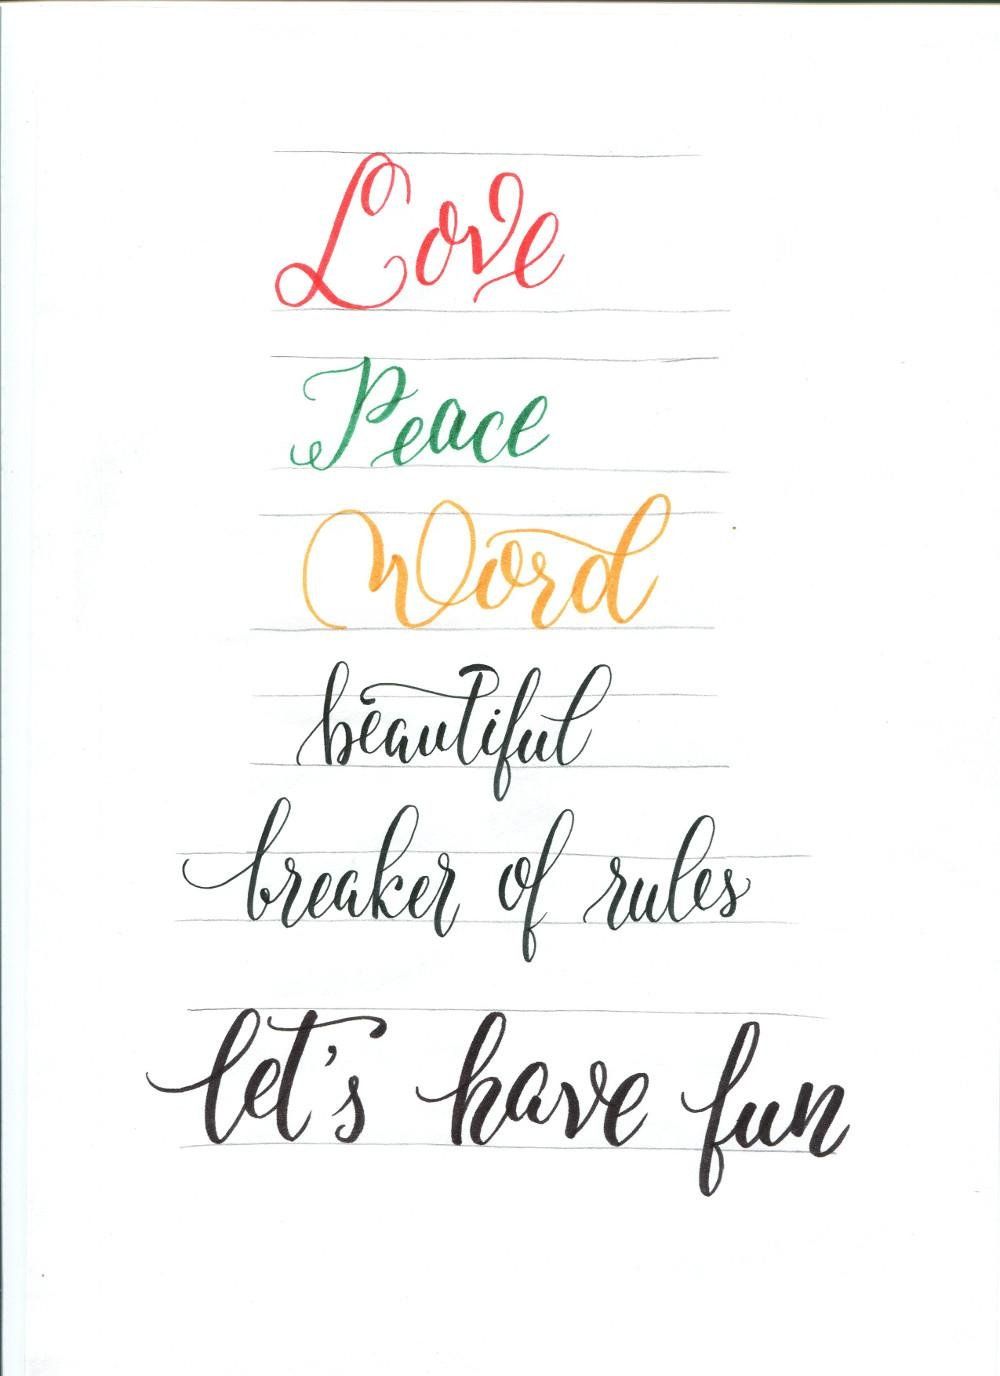 Love
Peace
Word
beautiful
breaker of rules
let's have fun